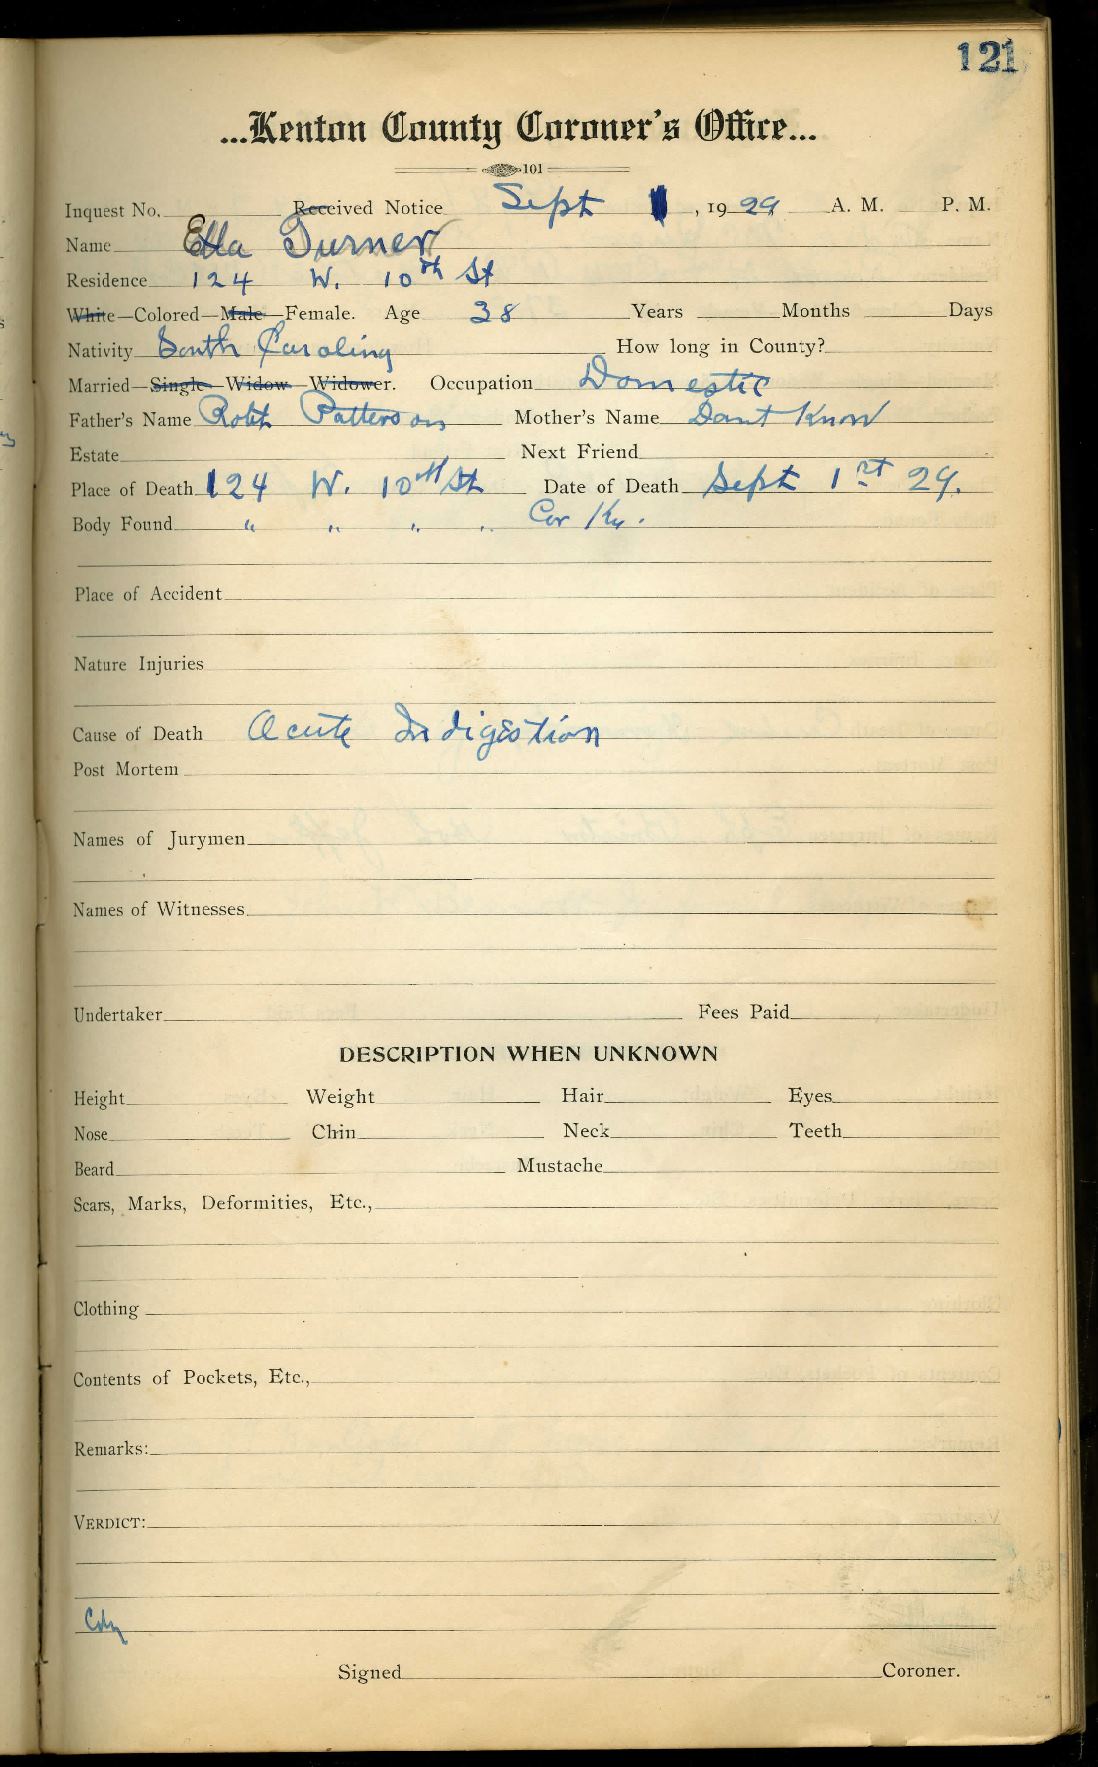 121
...Kenton County Coroner's Office...
101
Inquest No. Received Notice Sept 1, 1929 A. M. P. M.
Name Ella Turner
Residence 124 W. 10th St
White—Colored—Male—Female. Age 38 Years Months Days
Nativity South Carolina How long in County?
Married—Single—Widow—Widower. Occupation Domestic
Father's Name Robt Patterson Mother's Name Dont Know
Estate Next Friend
Place of Death 124 W. 10th St Date of Death Sept 1st 29.
Body Found " " " " Cov Ky.
Place of Accident
Nature Injuries
Cause of Death Acute Indigestion
Post Mortem
Names of Jurymen
Names of Witnesses
Undertaker Fees Paid
DESCRIPTION WHEN UNKNOWN
Height Weight Hair Eyes
Nose Chin Neck Teeth
Beard Mustache
Scars, Marks, Deformities, Etc.,
Clothing
Contents of Pockets, Etc.,
Remarks:
VERDICT:
Signed Coroner.